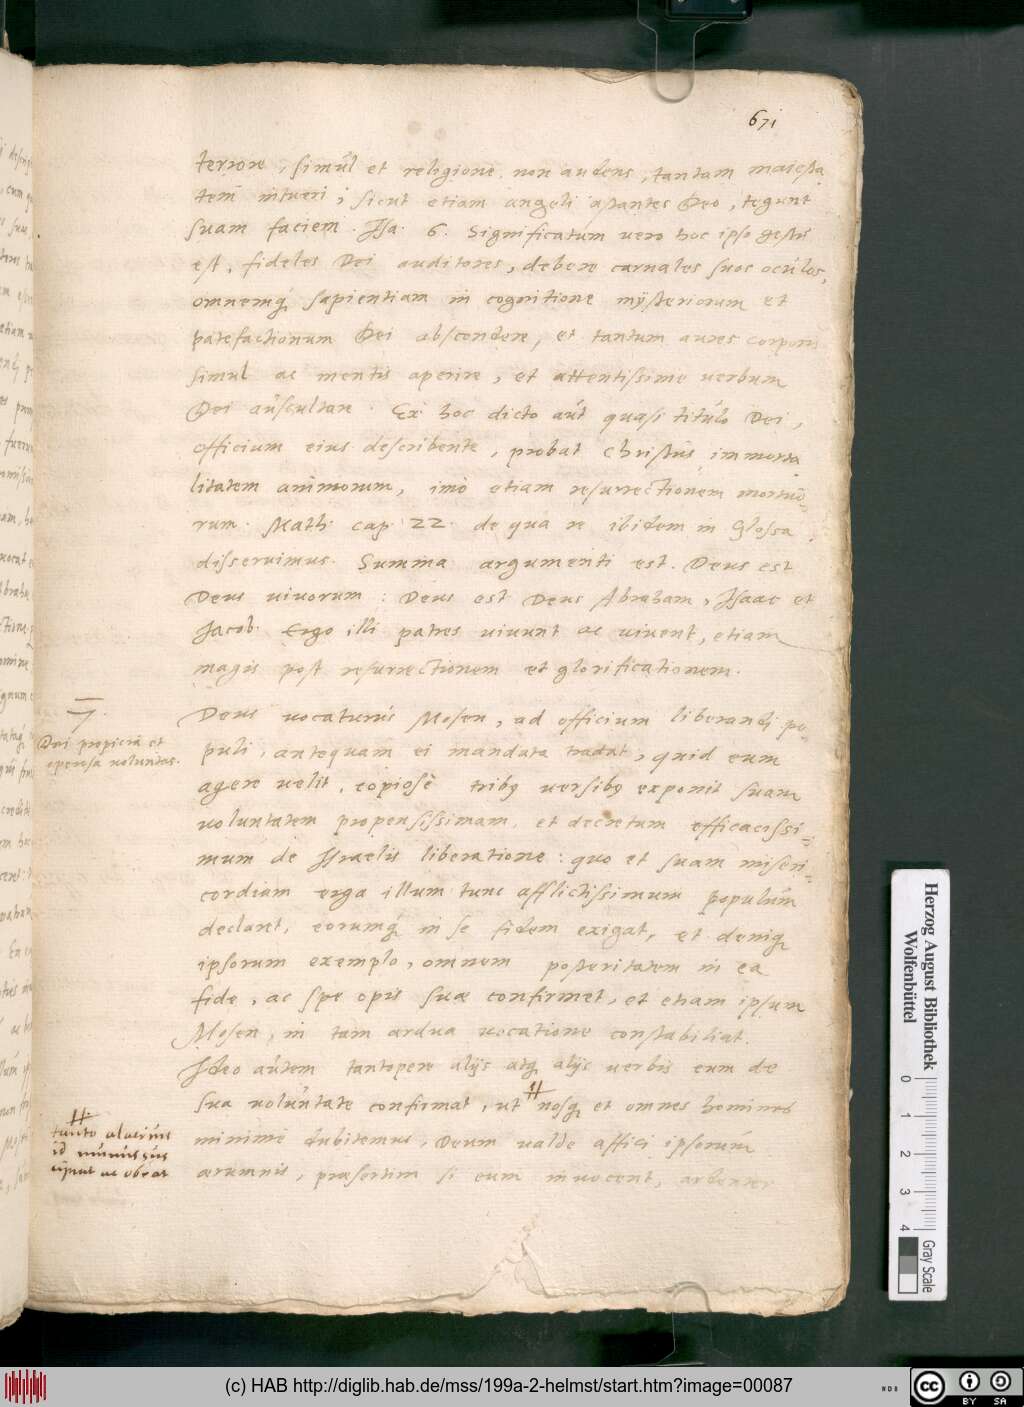 671
terrore, simul et religione non audens, tantam maiesta
tem intueri; sicut etiam angeli astantes Deo, tegunt
suam faciem. Isa. 6. Significatum vero hoc ipso gestu
est, fideles Dei auditores, debere carnales suos oculos,
omnemq́ sapientiam in cognitione mysteriorum et
patefactionum Dei abscondere, et tantum aures corporis
simul ac mentis aperire, et attentissime verbum
Dei auscultare. Ex hoc dicto aut quasi titulo Dei,
officium eius describente, probat Christus immorta
litatem animorum, imò etiam resurrectionem mortuo=
rum. Math. cap. 22. de qua re ibidem in Glossa
disseruimus. Summa argumenti est. Deus est
Deus vivorum: Deus est Deus Abraham, Isaac et
Jacob. Ergo illi patres vivunt ac vivent, etiam
magis post resurrectionem et glorificationem.
7.
Dei propicia et
epensa voluntas.
Deus vocaturus Mosen, ad officium liberandi po=
puli, antequam ei mandata tradat, quid eum
agere velit, copiosè tribus versibus exponit suam
voluntatem propensissimam, et decretum efficacissi=
mum de Israelis liberatione: quo et suam miseri=
cordiam erga illum tunc afflictissimum populum
declaret, eorumq́ in se fidem exigat, et deniq́
ipsorum exemplo, omnem posteritatem in ea
fide, ac spe opis suae confirmet, et etiam ipsum
Mosen, in tam ardua vocatione constabiliat.
Ideo autem tantopere alijs atq́ alijs verbis eum de
sua voluntate confirmat, ut # nosq́ et omnes homines
minimè dubitemus, Deum valde affici ipsorum
aerumnis, praesertim si eum invocent, ardenter
#
tanto alacrius
id munus sus
cipiat ac obeat
Herzog August Bibliothek
Wolfenbüttel
0 1 2 3 4
Gray Scale
(c) HAB http://diglib.hab.de/mss/199a-2-helmst/start.htm?image=00087
cc BY SA